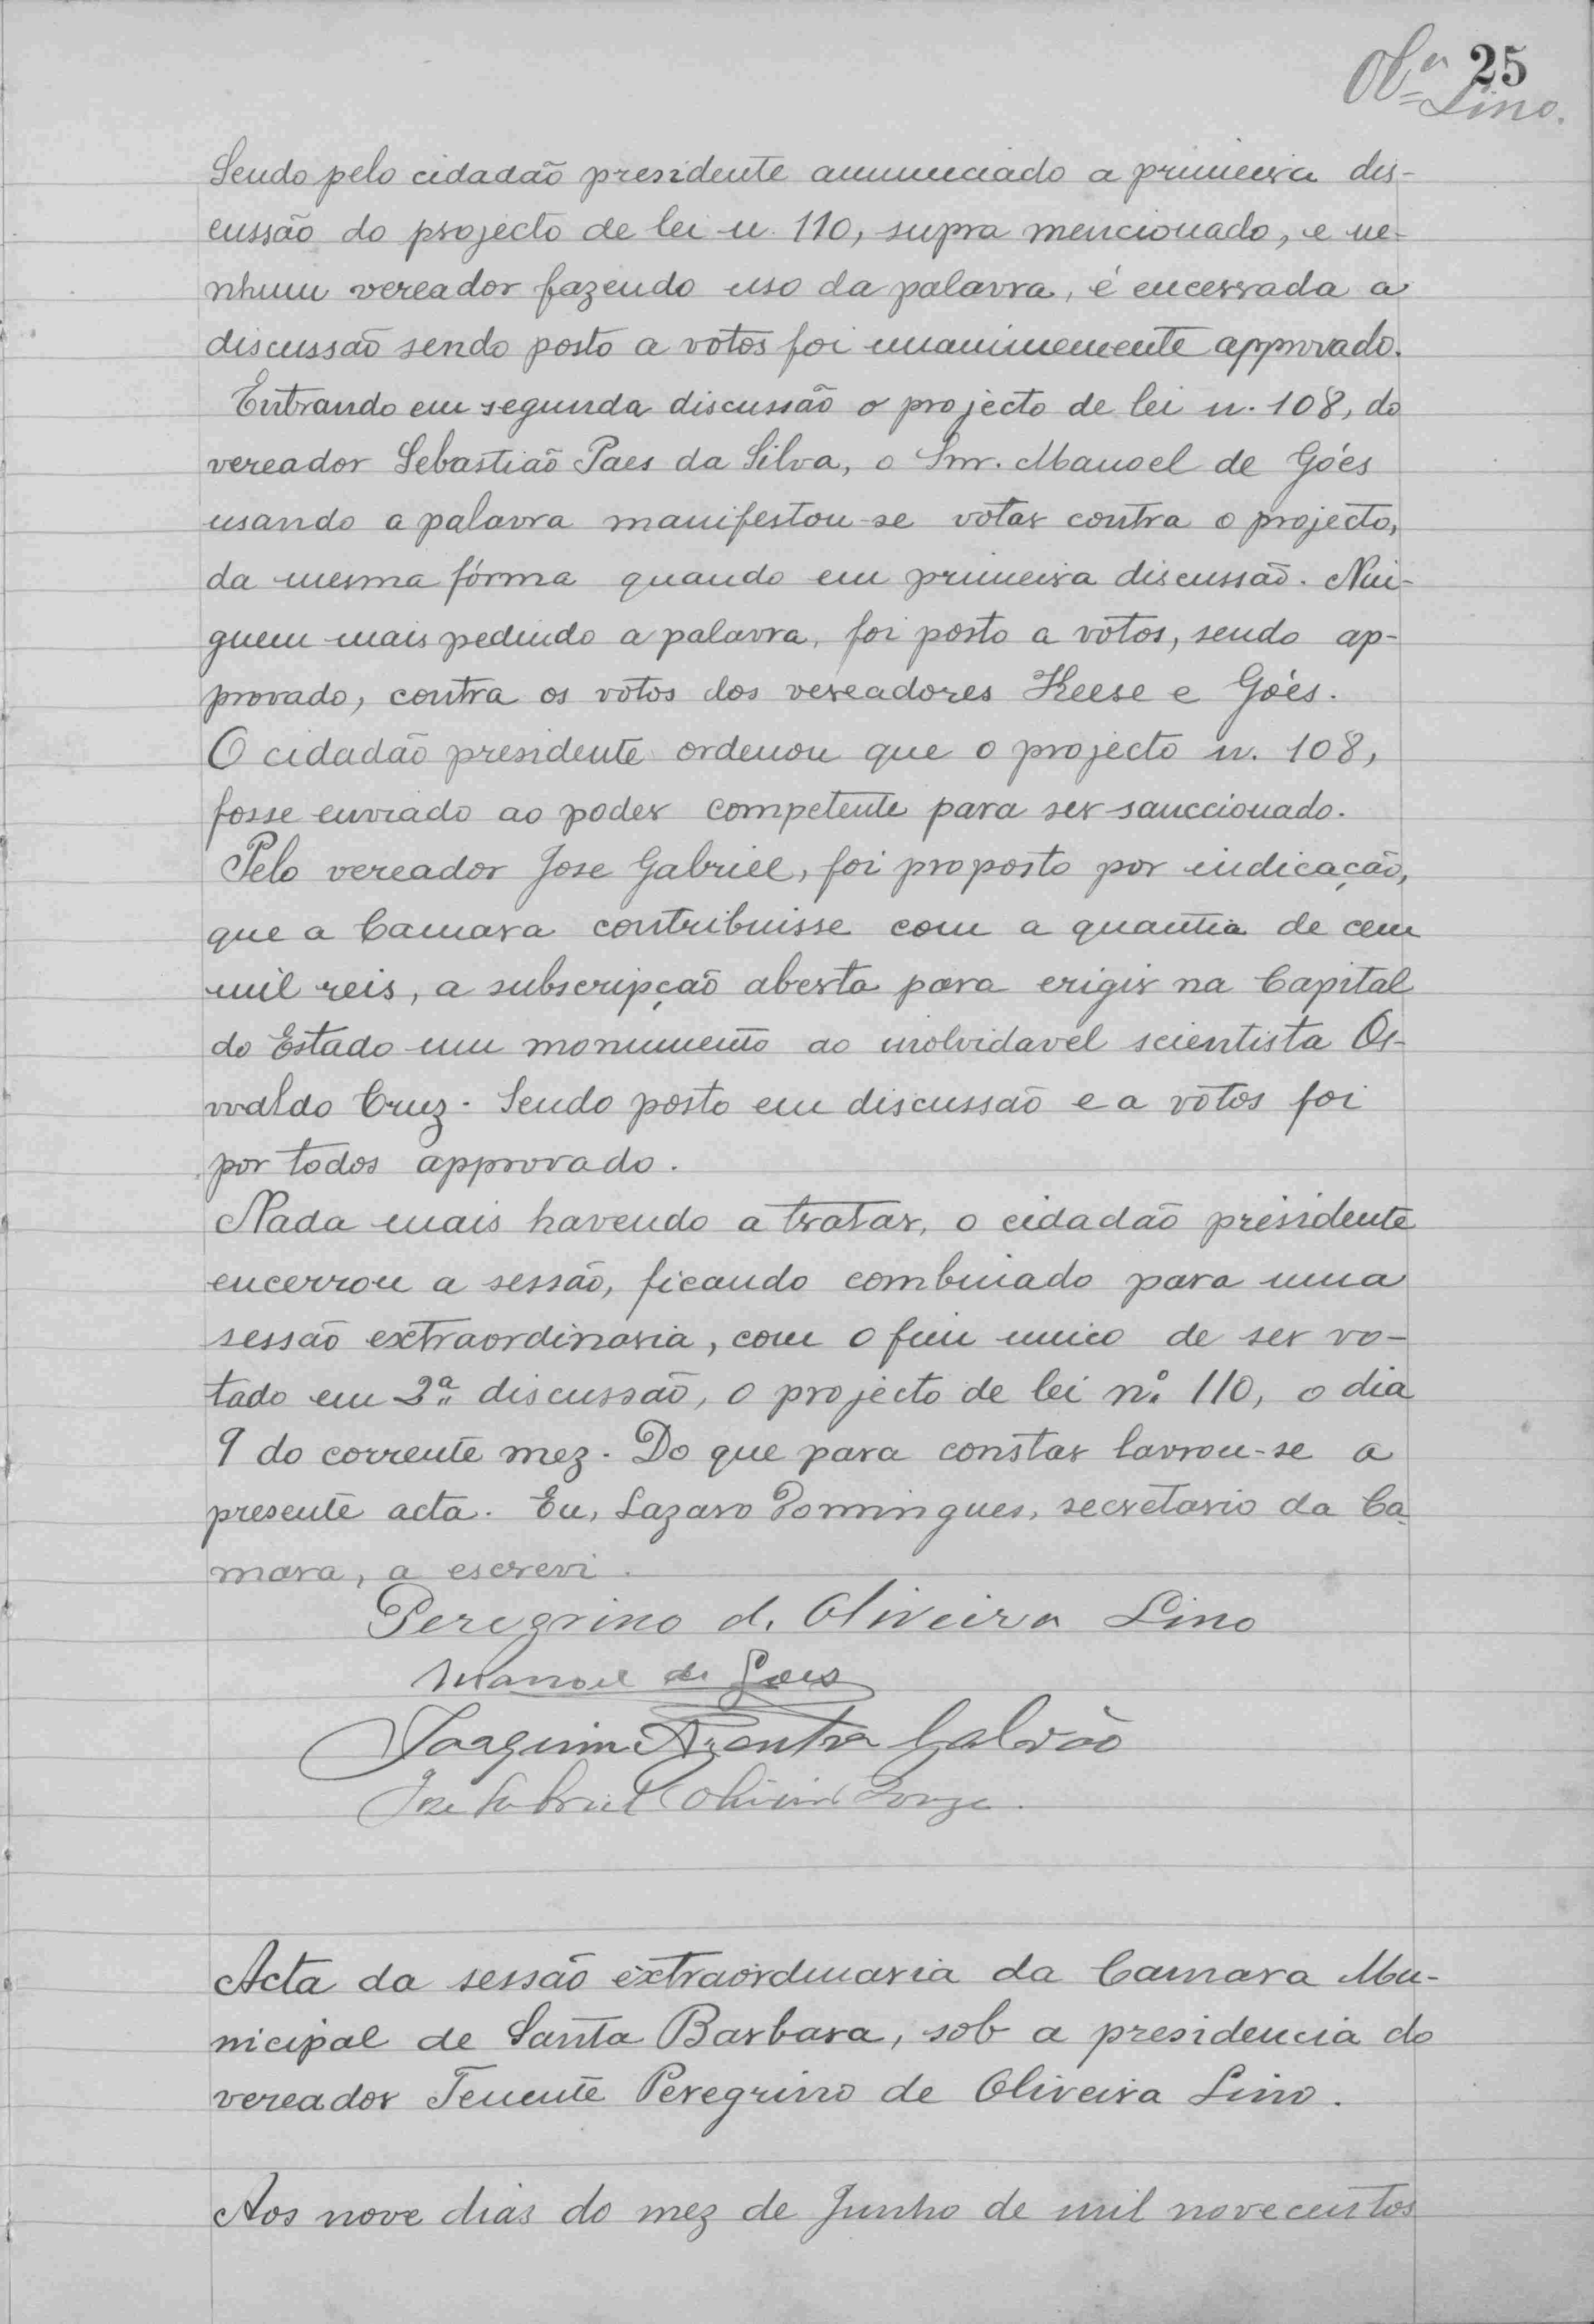 25
Olª Lino.
Sendo pelo cidadão presidente annunciado a primeira dis-
cussão do projecto de lei n. 110, supra mencionado, e ne-
nhum vereador fazendo uso da palavra, é encerrada a
discussão sendo posto a votos foi unanimemente approvado.
Entrando em segunda discussão o projecto de lei n. 108, do
vereador Sebastião Paes da Silva, o Snr. Manoel de Góes
usando a palavra manifestou-se votar contra o projecto,
da mesma fórma quando em primeira discussão. Nin-
guem mais pedindo a palavra, foi posto a votos, sendo ap-
provado, contra os votos dos vereadores Keese e Góes.
O cidadão presidente ordenou que o projecto n. 108,
fosse enviado ao poder competente para ser sanccionado.
Pelo vereador Jose Gabriel, foi proposto por indicação,
que a Camara contribuisse com a quantia de cem
mil reis, a subscripção aberta para erigir na Capital
do Estado um monumento ao inolvidavel scientista Os-
waldo Cruz. Sendo posto em discussão e a votos foi
por todos approvado.
Nada mais havendo a tratar, o cidadão presidente
encerrou a sessão, ficando combinado para uma
sessão extraordinaria, com o fim unico de ser vo-
tado em 2ª discussão, o projecto de lei nº 110, o dia
9 do corrente mez. Do que para constar lavrou-se a
presente acta. Eu, Lazaro Domingues, secretario da Ca-
mara, a escrevi.
Peregrino d. Oliveira Lino
Manoel de Goes
Joaquim Azanha Galvão
Jose Gabriel Oliveira
Acta da sessão extraordinaria da Camara Mu-
nicipal de Santa Barbara, sob a presidencia do
vereador Tenente Peregrino de Oliveira Lino.
Aos nove dias do mez de Junho de mil novecentos